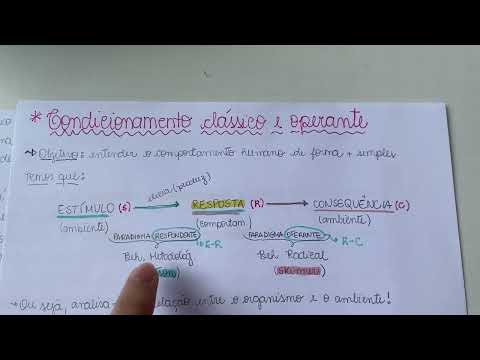 * Condicionamento clássico e operante
↝ Objetivo: entender o comportamento humano de forma + simples
Temos que:
elicia (produz)
ESTÍMULO (S) → RESPOSTA (R) → CONSEQUÊNCIA (C)
(ambiente) (comportam) (ambiente)
PARADIGMA RESPONDENTE PARADIGMA OPERANTE
R-C
Beh. Beh. Radical
SKINNER
→ Ou seja, analisa entre o organismo e o ambiente!